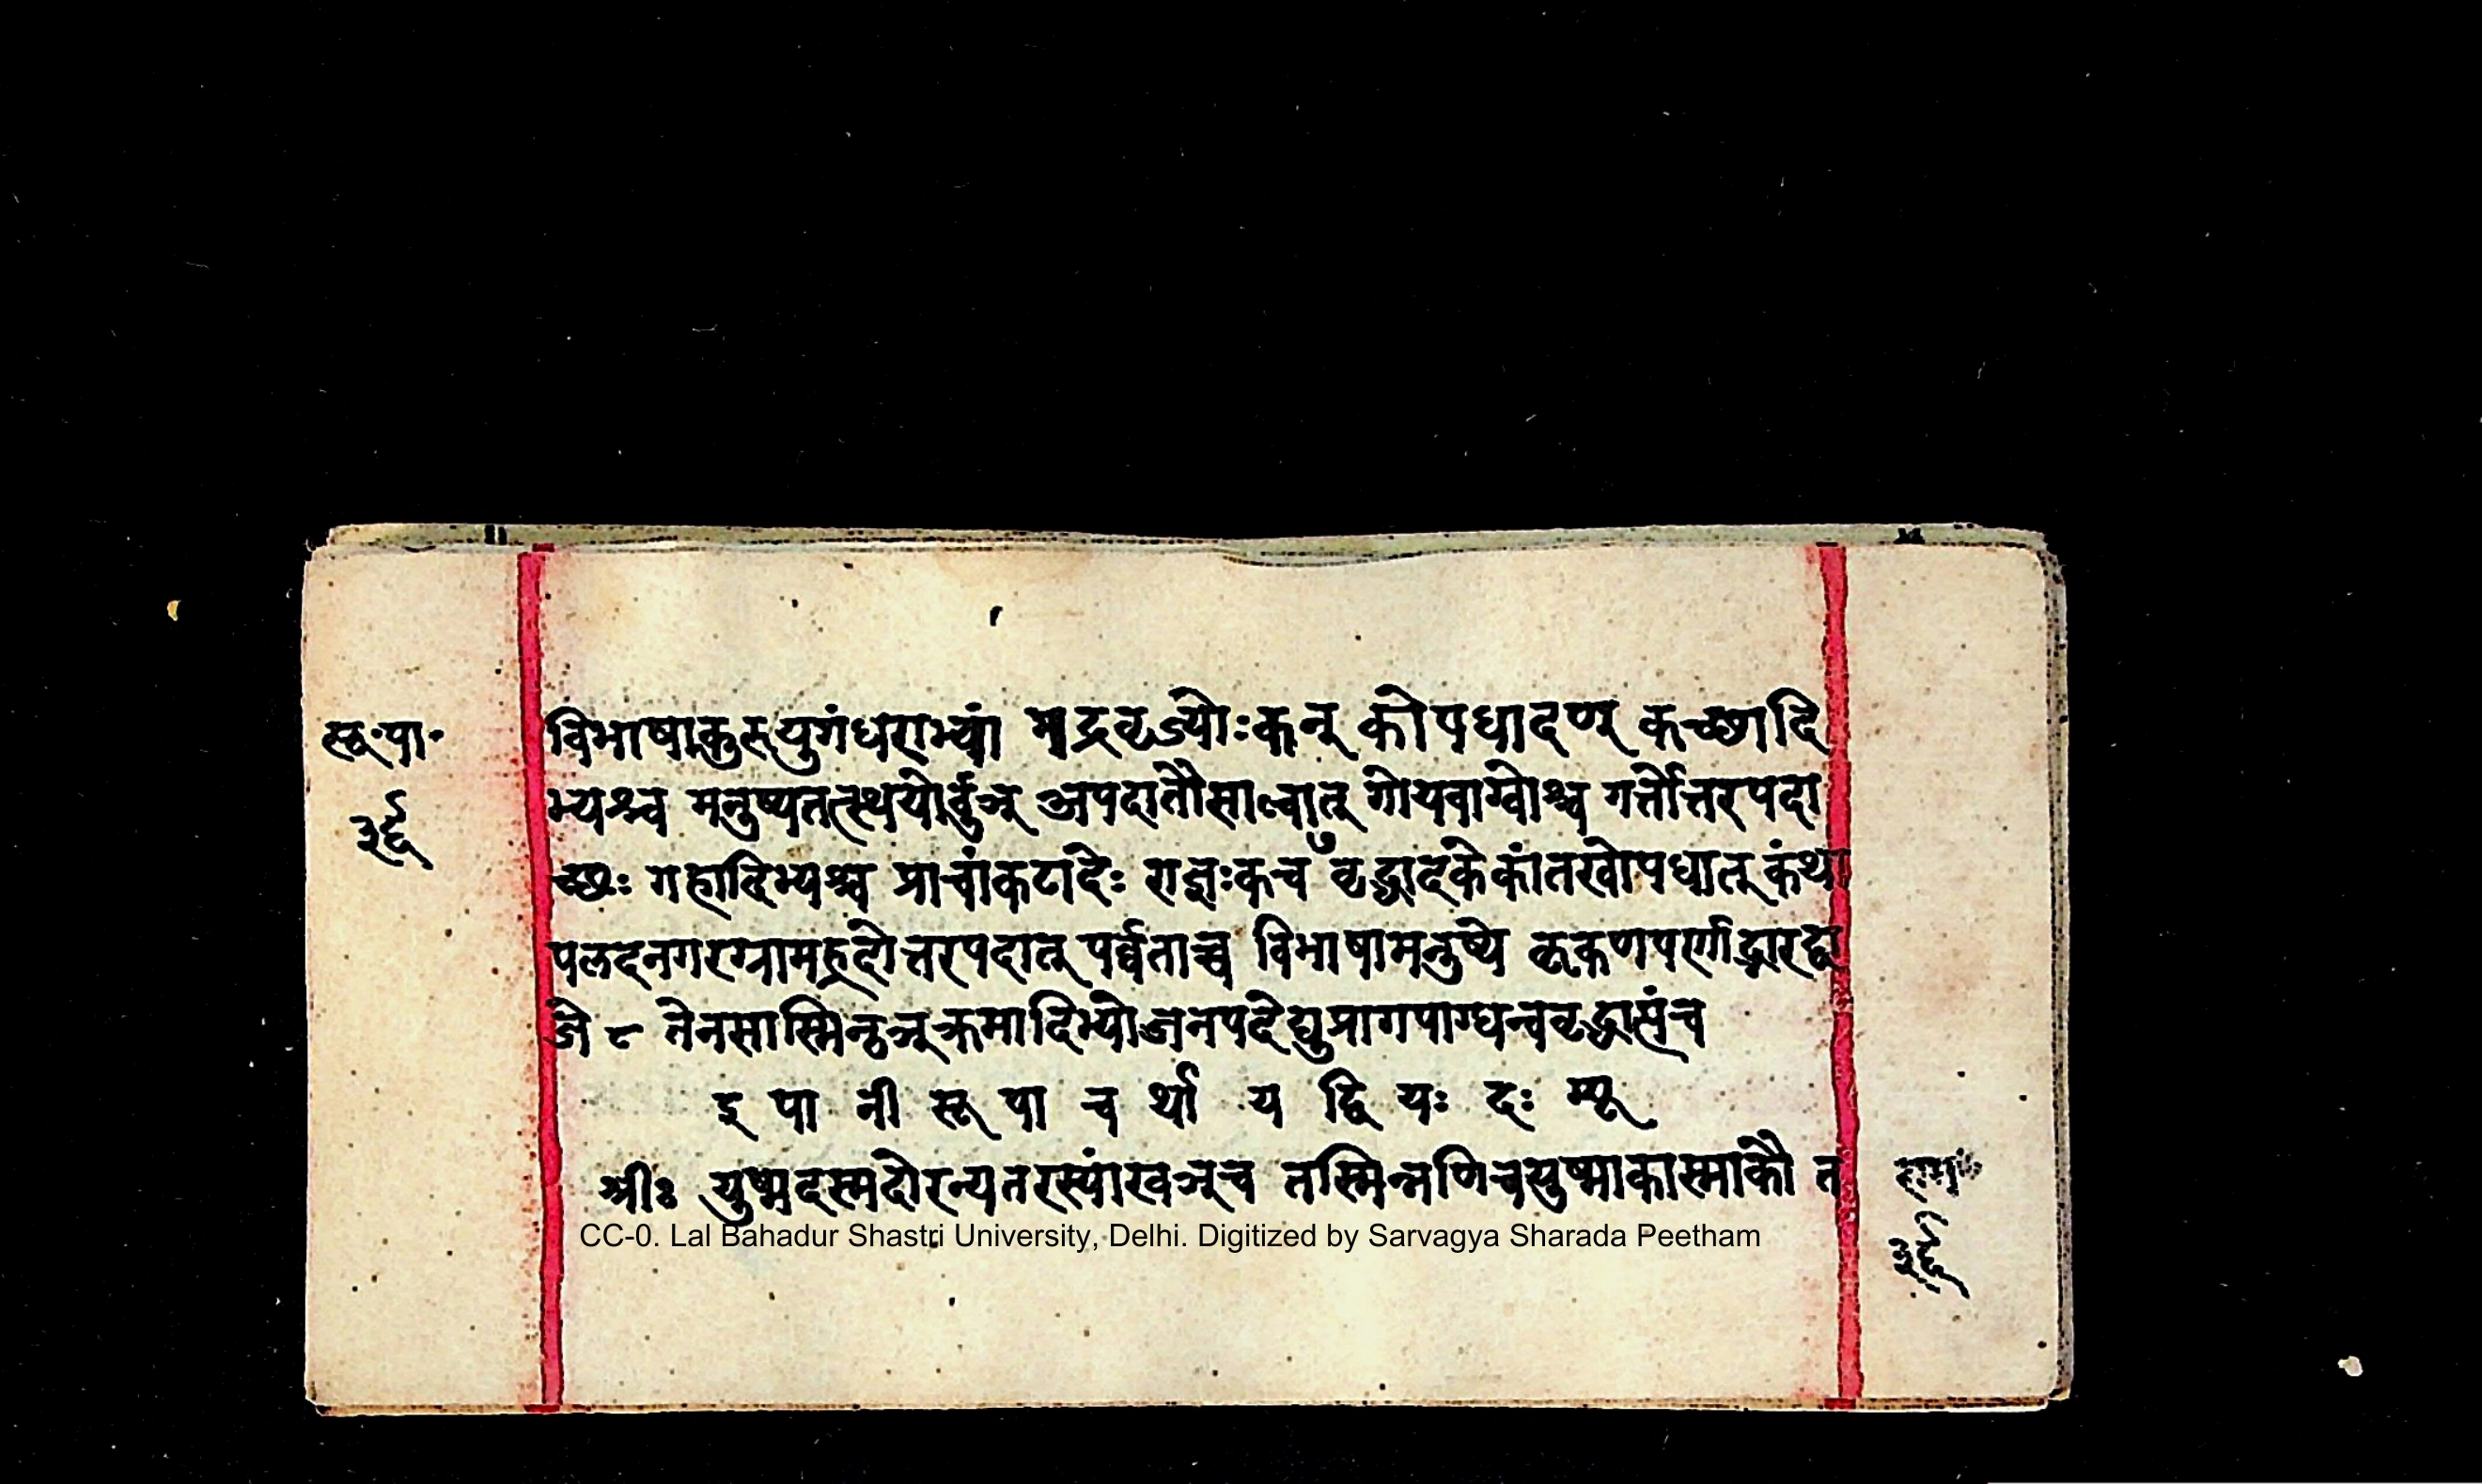 सू॰पा॰
३६
विभाषाकुरुयुगंधराभ्यां मद्रवृज्योःकन् कोपधादण् कच्छादि
भ्यश्च मनुष्यतत्स्थयोर्वुञ् अपदातौसाल्वात् गोयवाग्वोश्च गर्त्तोत्तरपदा
च्छः गहादिभ्यश्च प्राचांकटादेः राज्ञःकच वृद्धादकेकांतखोपधात् कंथा
पलदनगरग्रामह्रदोत्तरपदात् पर्व्वताच्च विभाषामनुष्ये कृकणपर्णाद्भारद्वा
जे ८ तेनसास्मिन्ठञ्क्रमादिभ्योजनपदेद्युप्रागपाग्धन्ववृद्धासंच
इ पा नी सू पा च र्था य द्वि यः दः
श्रीः युष्मदस्मदोरन्यतरस्यांखञ्च तस्मिन्नणिचयुष्माकास्माकौ त
राम
३६
CC-0. Lal Bahadur Shastri University, Delhi. Digitized by Sarvagya Sharada Peetham